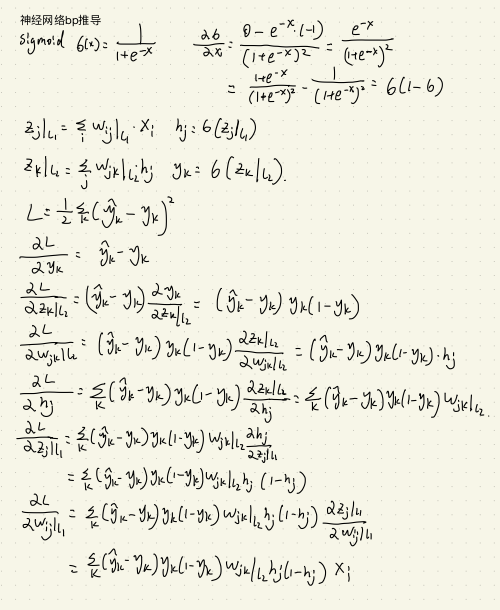 神经网络bp推导
sigmoid 6(x) = 1/(1+e^-x)    ∂6/∂x = (0 - e^-x·(-1))/(1+e^-x)^2 = e^-x/(1+e^-x)^2
= (1+e^-x)/(1+e^-x)^2 - 1/(1+e^-x)^2 = 6(1-6)
z_j|L1 = Σ_i w_ij|L1 · x_i    h_j = 6(z_j|L1)
z_k|L2 = Σ_j w_jk|L2 h_j    y_k = 6(z_k|L2).
L = 1/2 Σ_k (ŷ_k - y_k)^2
∂L/∂y_k = ŷ_k - y_k
∂L/∂z_k|L2 = (ŷ_k - y_k) ∂y_k/∂z_k|L2 = (ŷ_k - y_k) y_k(1-y_k)
∂L/∂w_jk|L2 = (ŷ_k - y_k) y_k(1-y_k) ∂z_k|L2/∂w_jk|L2 = (ŷ_k - y_k) y_k(1-y_k)·h_j
∂L/∂h_j = Σ_k (ŷ_k - y_k) y_k(1-y_k) ∂z_k|L2/∂h_j = Σ_k (ŷ_k - y_k) y_k(1-y_k) w_jk|L2.
∂L/∂z_j|L1 = Σ_k (ŷ_k - y_k) y_k(1-y_k) w_jk|L2 ∂h_j/∂z_j|L1
= Σ_k (ŷ_k - y_k) y_k(1-y_k) w_jk|L2 h_j (1-h_j)
∂L/∂w_ij|L1 = Σ_k (ŷ_k - y_k) y_k(1-y_k) w_jk|L2 h_j (1-h_j) ∂z_j|L1/∂w_ij|L1
= Σ_k (ŷ_k - y_k) y_k(1-y_k) w_jk|L2 h_j (1-h_j) x_i